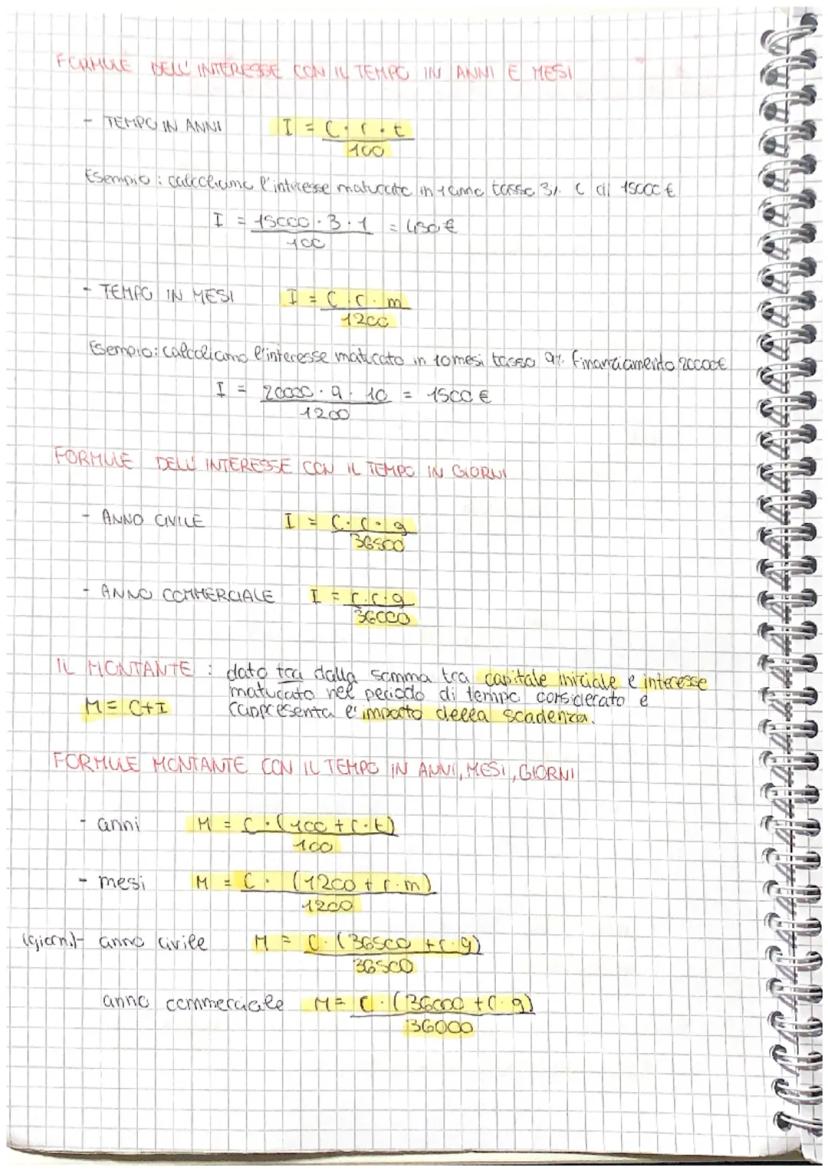 FORMULE DELL'INTERESSE CON IL TEMPO IN ANNI E MESI
- TEMPO IN ANNI I = C·r·t
100
Esempio: calcoliamo l'interesse maturato in 1 anno tasso 3% C di 15000 €
I = 15000·3·1 = 450 €
100
- TEMPO IN MESI I = C·r·m
1200
Esempio: calcoliamo l'interesse maturato in 10 mesi tasso 9% finanziamento 20000€
I = 20000·9·10 = 1500 €
1200
FORMULE DELL'INTERESSE CON IL TEMPO IN GIORNI
- ANNO CIVILE I = C·r·g
36500
- ANNO COMMERCIALE I = C·r·g
36000
IL MONTANTE : dato tra dalla somma tra capitale iniziale e interesse
maturato nel periodo di tempo considerato e
M = C+I rappresenta l'importo della scadenza.
FORMULE MONTANTE CON IL TEMPO IN ANNI, MESI, GIORNI
- anni M = C·(100+r·t)
100
- mesi M = C·(1200+r·m)
1200
(giorni)- anno civile M = C·(36500+r·g)
36500
anno commerciale M = C·(36000+r·g)
36000